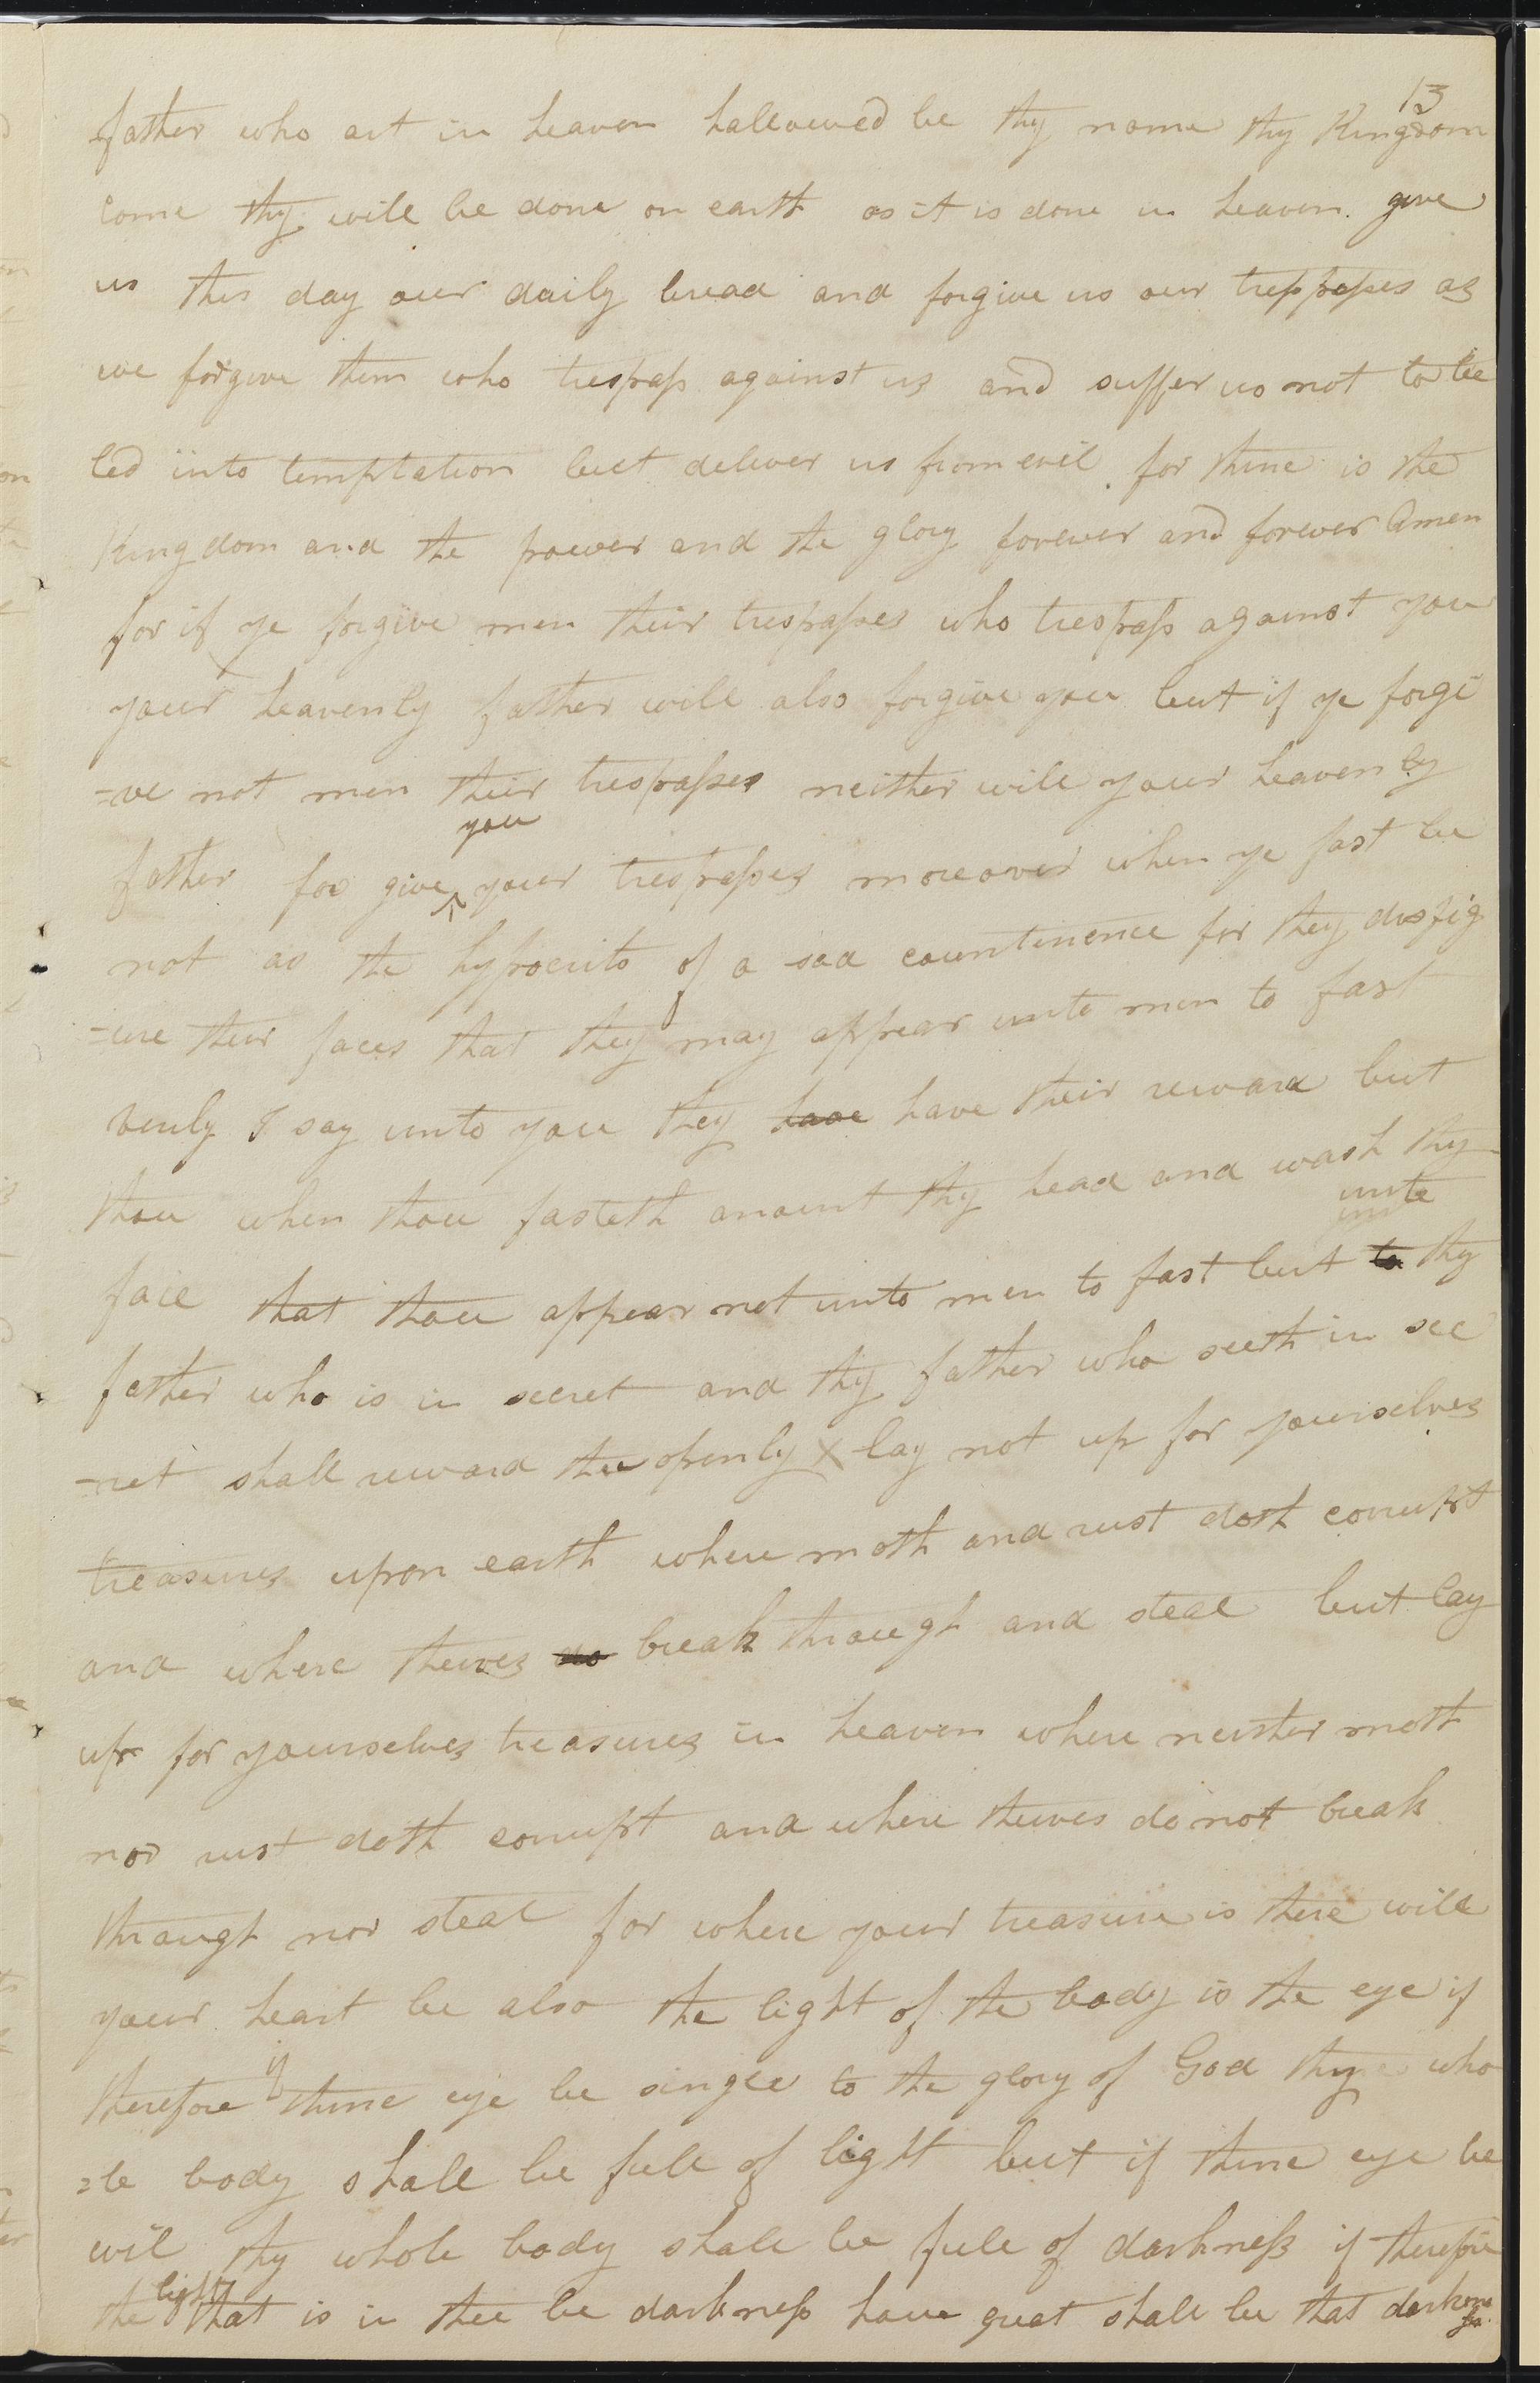 13
father who art in heaven hallowed be thy name thy Kingdom
come thy will be done on earth as it is done in heaven. give
us this day our daily bread and forgive us our trespasses as
we forgive them who trespass against us and suffer us not to be
led into temptation but deliver us from evil. for thine is the
Kingdom and the power and the glory forever and forever Amen
for if ye forgive men their trespasses who trespass against you
your heavenly father will also forgive you but if ye forgi
=ve not men their trespasses neither will your heavenly
you
father for give ^ your trespasses moreover when ye fast be
not as the hypocrits of a sad countinence for they disfig
=ure their faces that they may appear unto men to fast
verily I say unto you they have have their reward but
thou when thou fasteth anoint thy head and wash thy
unto
face that thou appear not unto men to fast but to thy
father who is in secret and thy father who seeth in sec
=ret shall reward thee openly X lay not up for yourselves
treasures upon earth where moth and rust doth corrupt
and where theives do break through and steal but lay
up for yourselves treasures in heaven where neither moth
nor rust doth corrupt and where theives do not break
through nor steal for where your treasure is there will
your heart be also the light of the body is the eye if
if
therefore thine eye be single to the glory of God thy who
=le body shall be full of light but if thine eye be
evil thy whole body shall be full of darkness if therefore
light
the that is in thee be darkness how great shall be that darkness